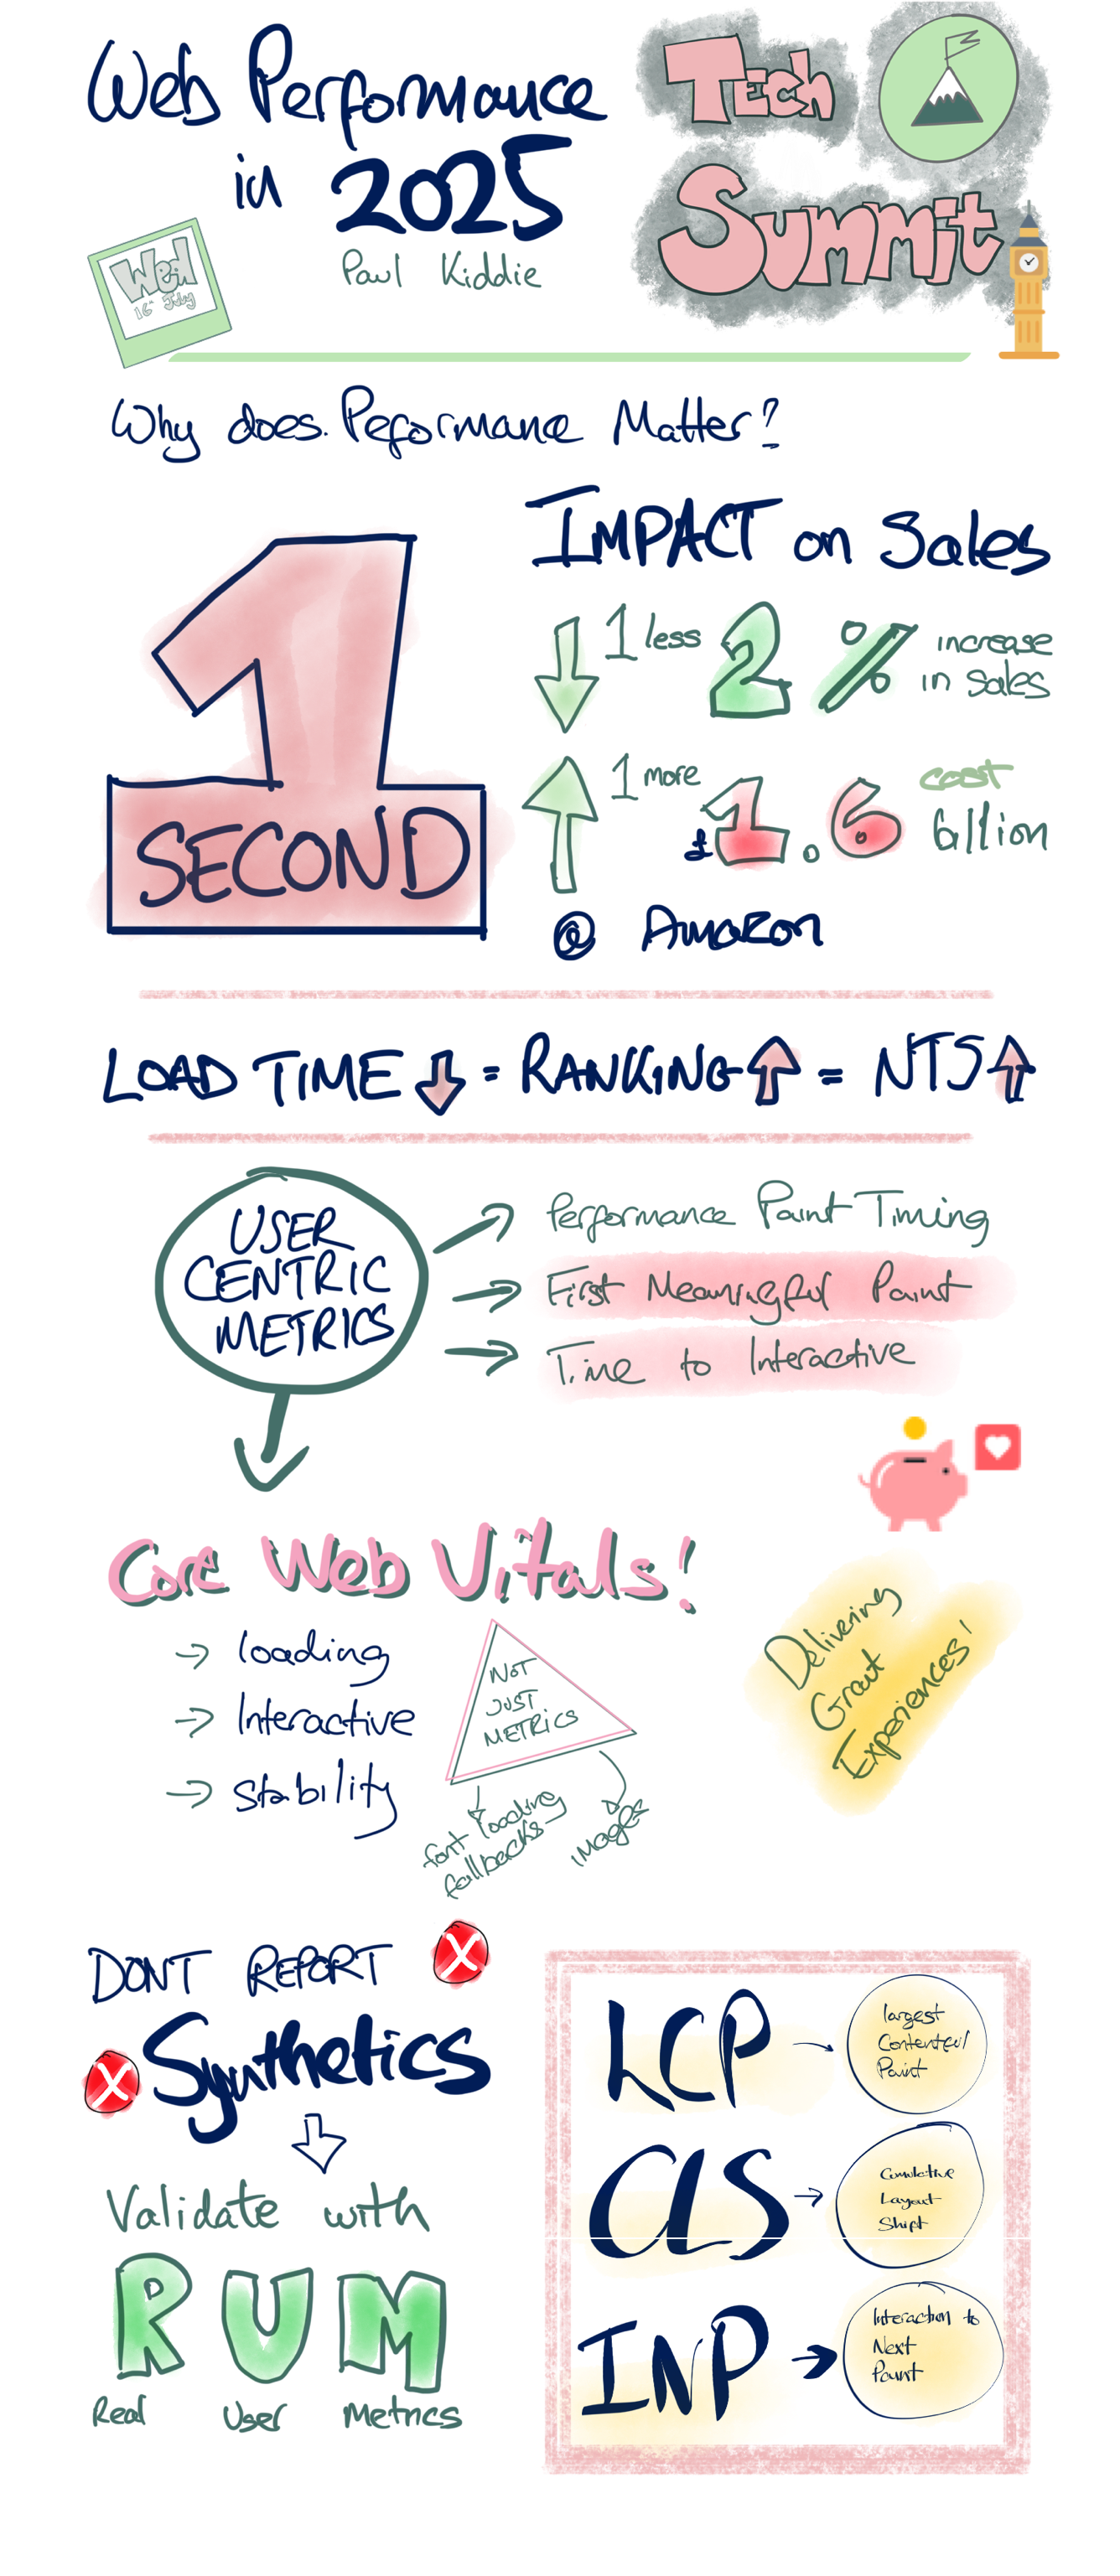 Web Performance
in 2025
Paul Kiddie
Tech
Summit
Wed
16th July
Why does Peformance Matter?
1
SECOND
IMPACT on Sales
1 less 2 % increase
in sales
1 more £1.6 cost
billion
@ Amazon
LOAD TIME ↓ = RANKING ↑ = NTS ↑
USER
CENTRIC
METRICS
→ Performance Paint Timing
→ First Meaningful Paint
→ Time to Interactive
Core Web Vitals!
→ loading
→ Interactive
→ stability
NOT
JUST
METRICS
font loading
fallbacks
images
Delivering
Great
Experiences!
DONT REPORT X
X Synthetics
Validate with
RUM
Real User Metrics
LCP → largest
Contentful
Paint
CLS → Cumulative
Layout
Shift
INP → Interaction to
Next
Paint